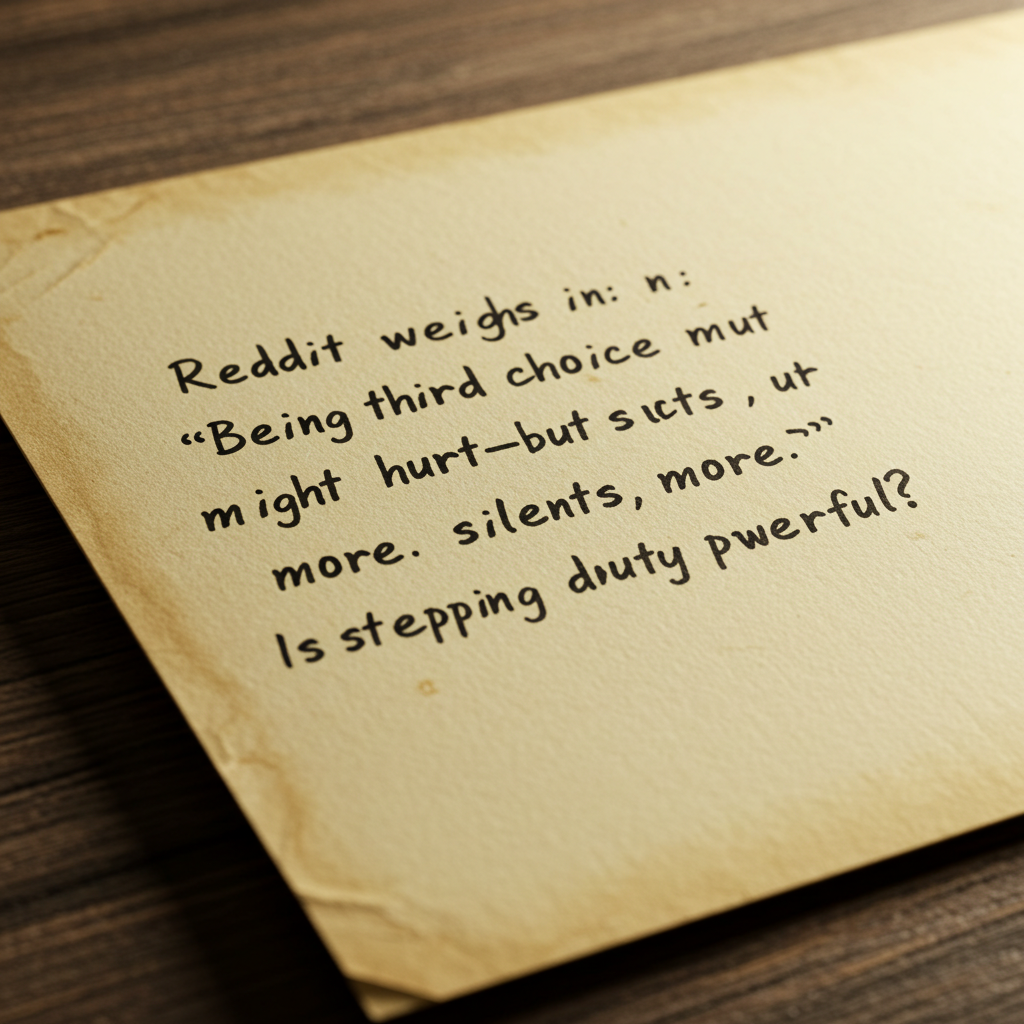 Reddit weighs in: n:
“Being third choice mut
might hurt—but sucts, ut
more. silents, more.””
Is stepping duty pwerful?